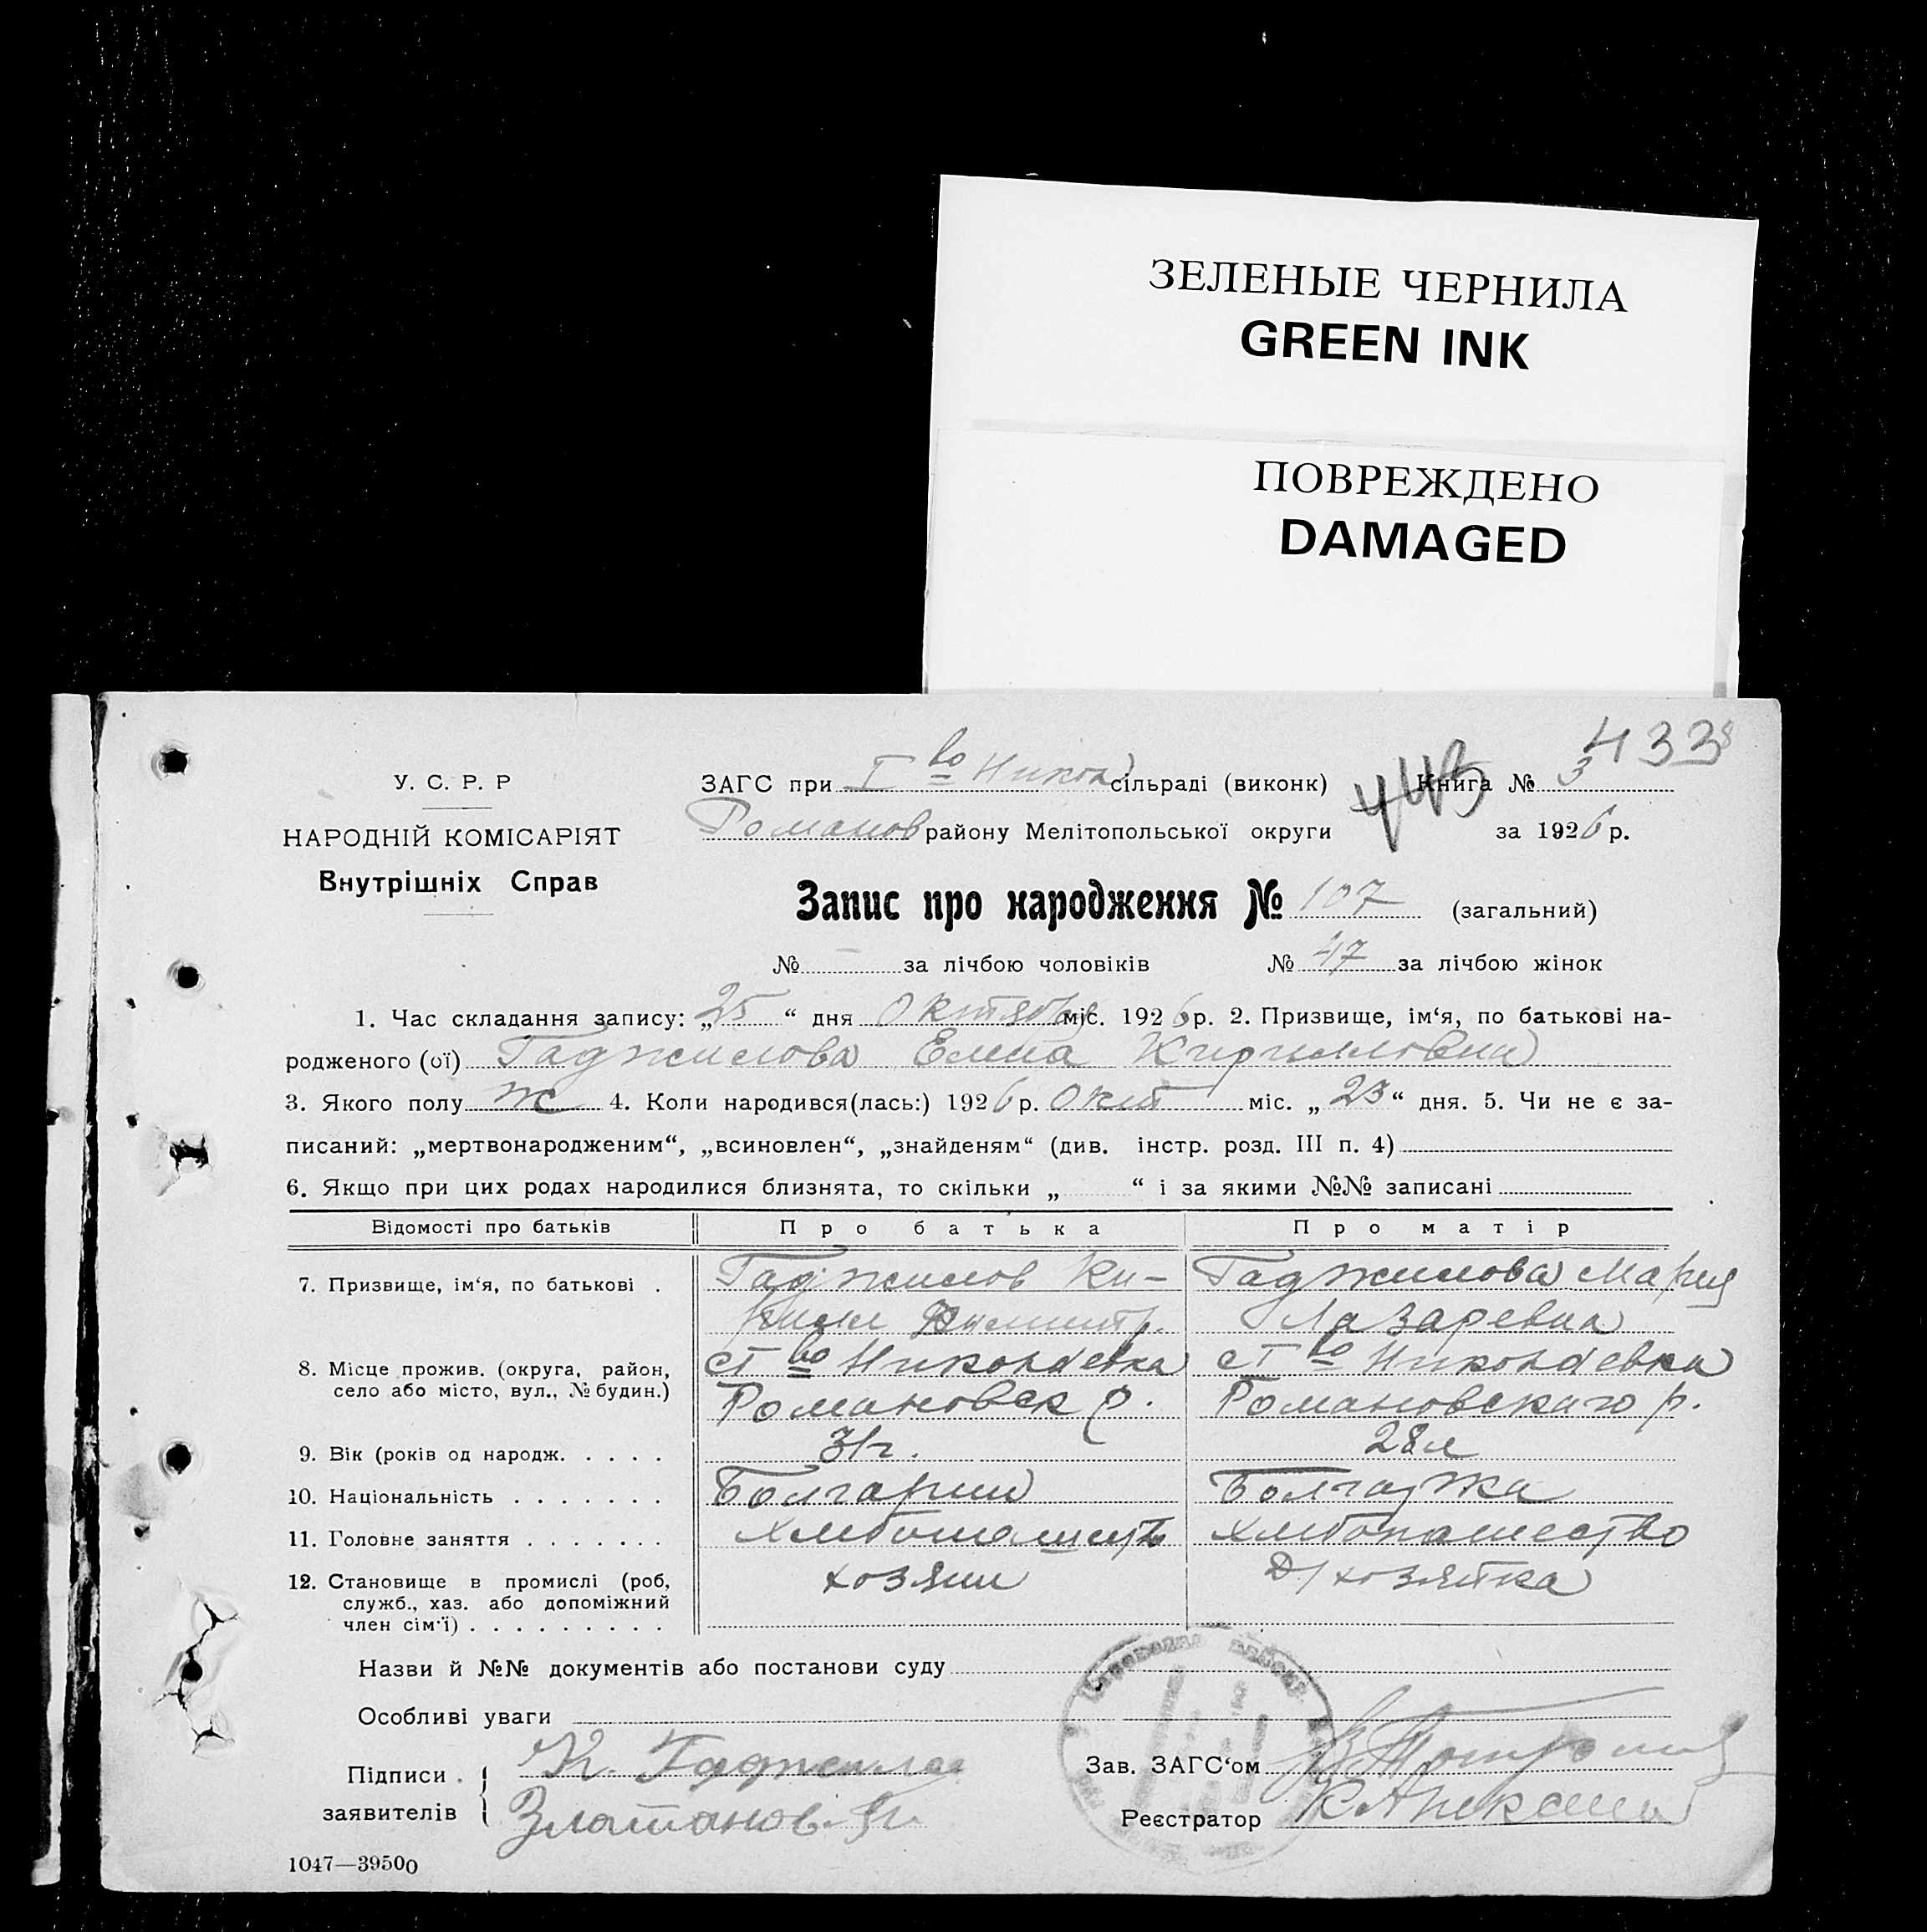 ЗЕЛЕНЫЕ ЧЕРНИЛА
GREEN INK
ПОВРЕЖДЕНО
DAMAGED
433
У. С. Р. Р
НАРОДНІЙ КОМІСАРІЯТ
Внутрішніх Справ
ЗАГС при I во Никол сільраді (виконк) Книга № 3
443
Романов району Мелітопольської округи за 1926 р.
Запис про народження № 107 (загальний)
№ — за лічбою чоловіків № 47 за лічбою жінок
1. Час складання запису: „25“ дня Октябр міс. 1926 р. 2. Призвище, ім‘я, по батькові на-
родженого (ої) Гаджилова Елена Кирилловна
3. Якого полу ж 4. Коли народився(лась:) 1926 р. Окт міс. „23“ дня. 5. Чи не є за-
писаний: „мертвонародженим“, „всиновлен“, „знайденям“ (див. інстр. розд. III п. 4)
6. Якщо при цих родах народилися близнята, то скільки „ “ і за якими №№ записані
Відомості про батьків Про батька Про матір
7. Призвище, ім‘я, по батькові . Гаджилов Ки- Гаджилова Мария
рилл Димитр. Лазаревна
8. Місце прожив. (округа, район, ст во Николаевка ст во Николаевка
село або місто, вул., № будин.) Романовск р. Романовскаго р.
9. Вік (років од народж. . . . . 31 г. 28 л
10. Національність . . . . . . . Болгарин Болгарка
11. Головне заняття . . . . . . . хлебопашество хлебопашество
12. Становище в промислі (роб, хозяин Д/хозяйка
служб., хаз. або допоміжний
член сім‘ї) . . . . . . . . .
Назви й №№ документів або постанови суду
Особливі уваги
Підписи . К. Гаджилов Зав. ЗАГС‘ом
заявителів Златанов Реєстратор
1047—39500